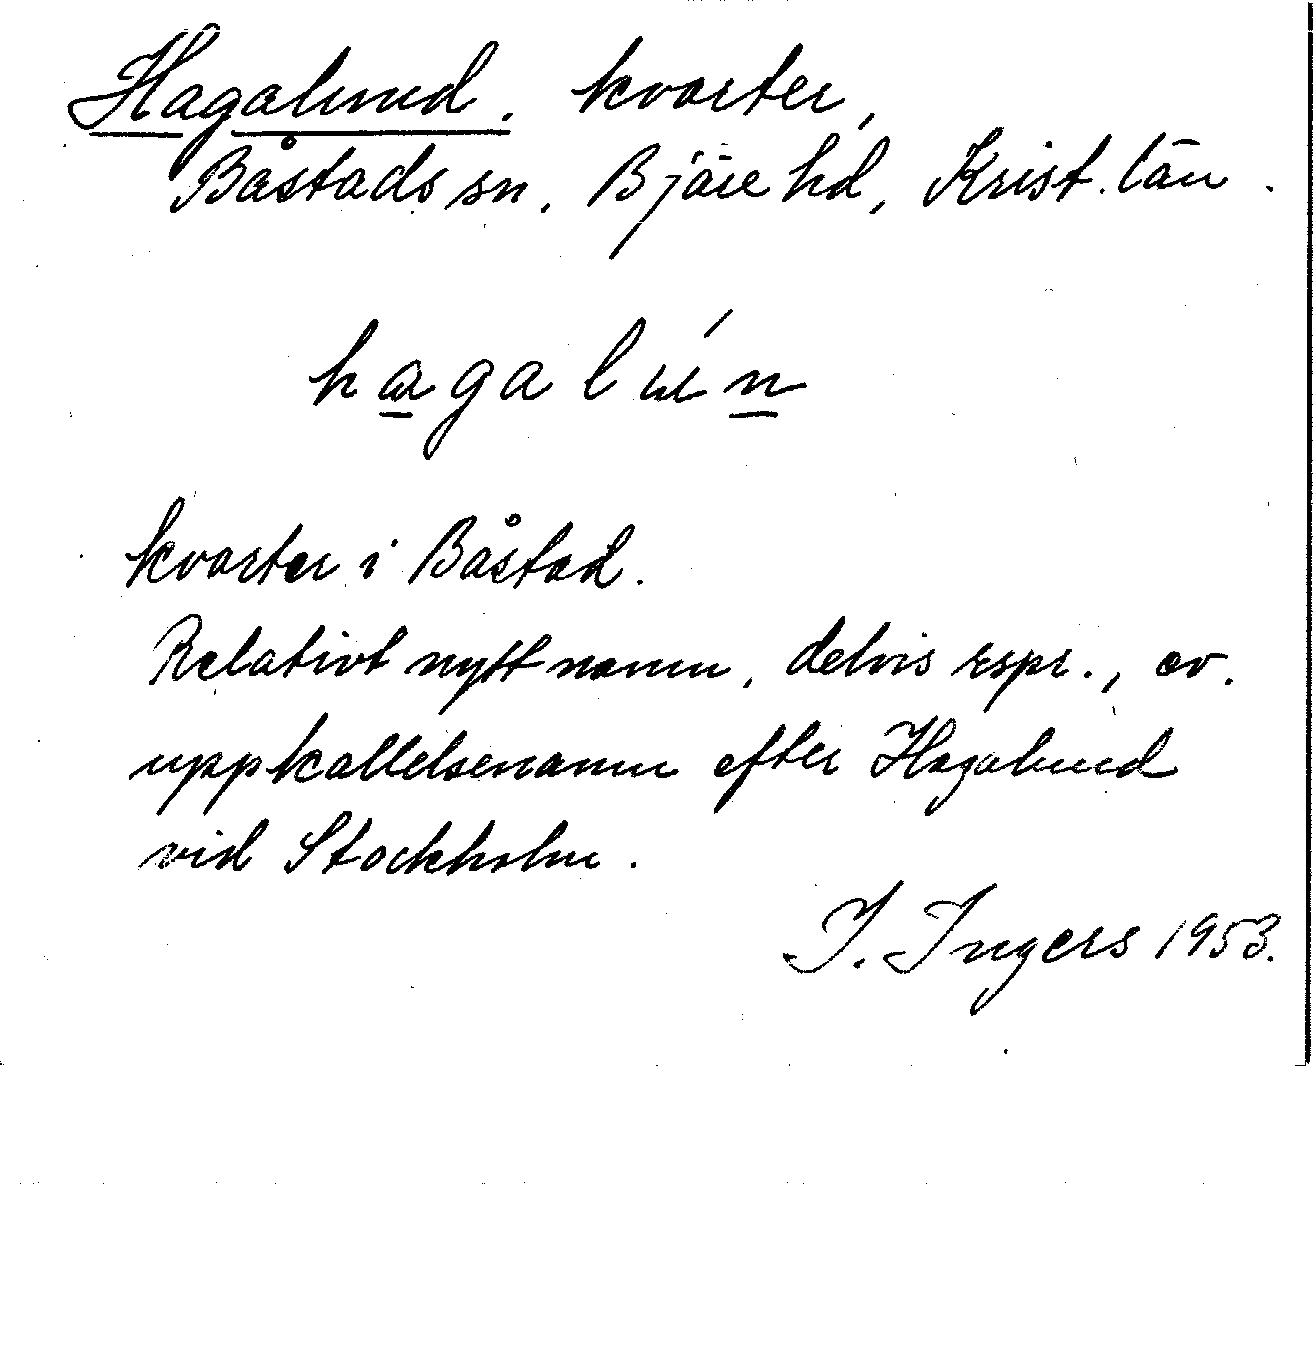 Hagalund. kvarter,
Båstads sn. Bjäre hd, Krist. län.
hagalún
kvarter i Båstad.
Relativt nytt namn, delvis rspr., ev.
uppkallelsenamn efter Hagalund
vid Stockholm.
I. Ingers 1953.